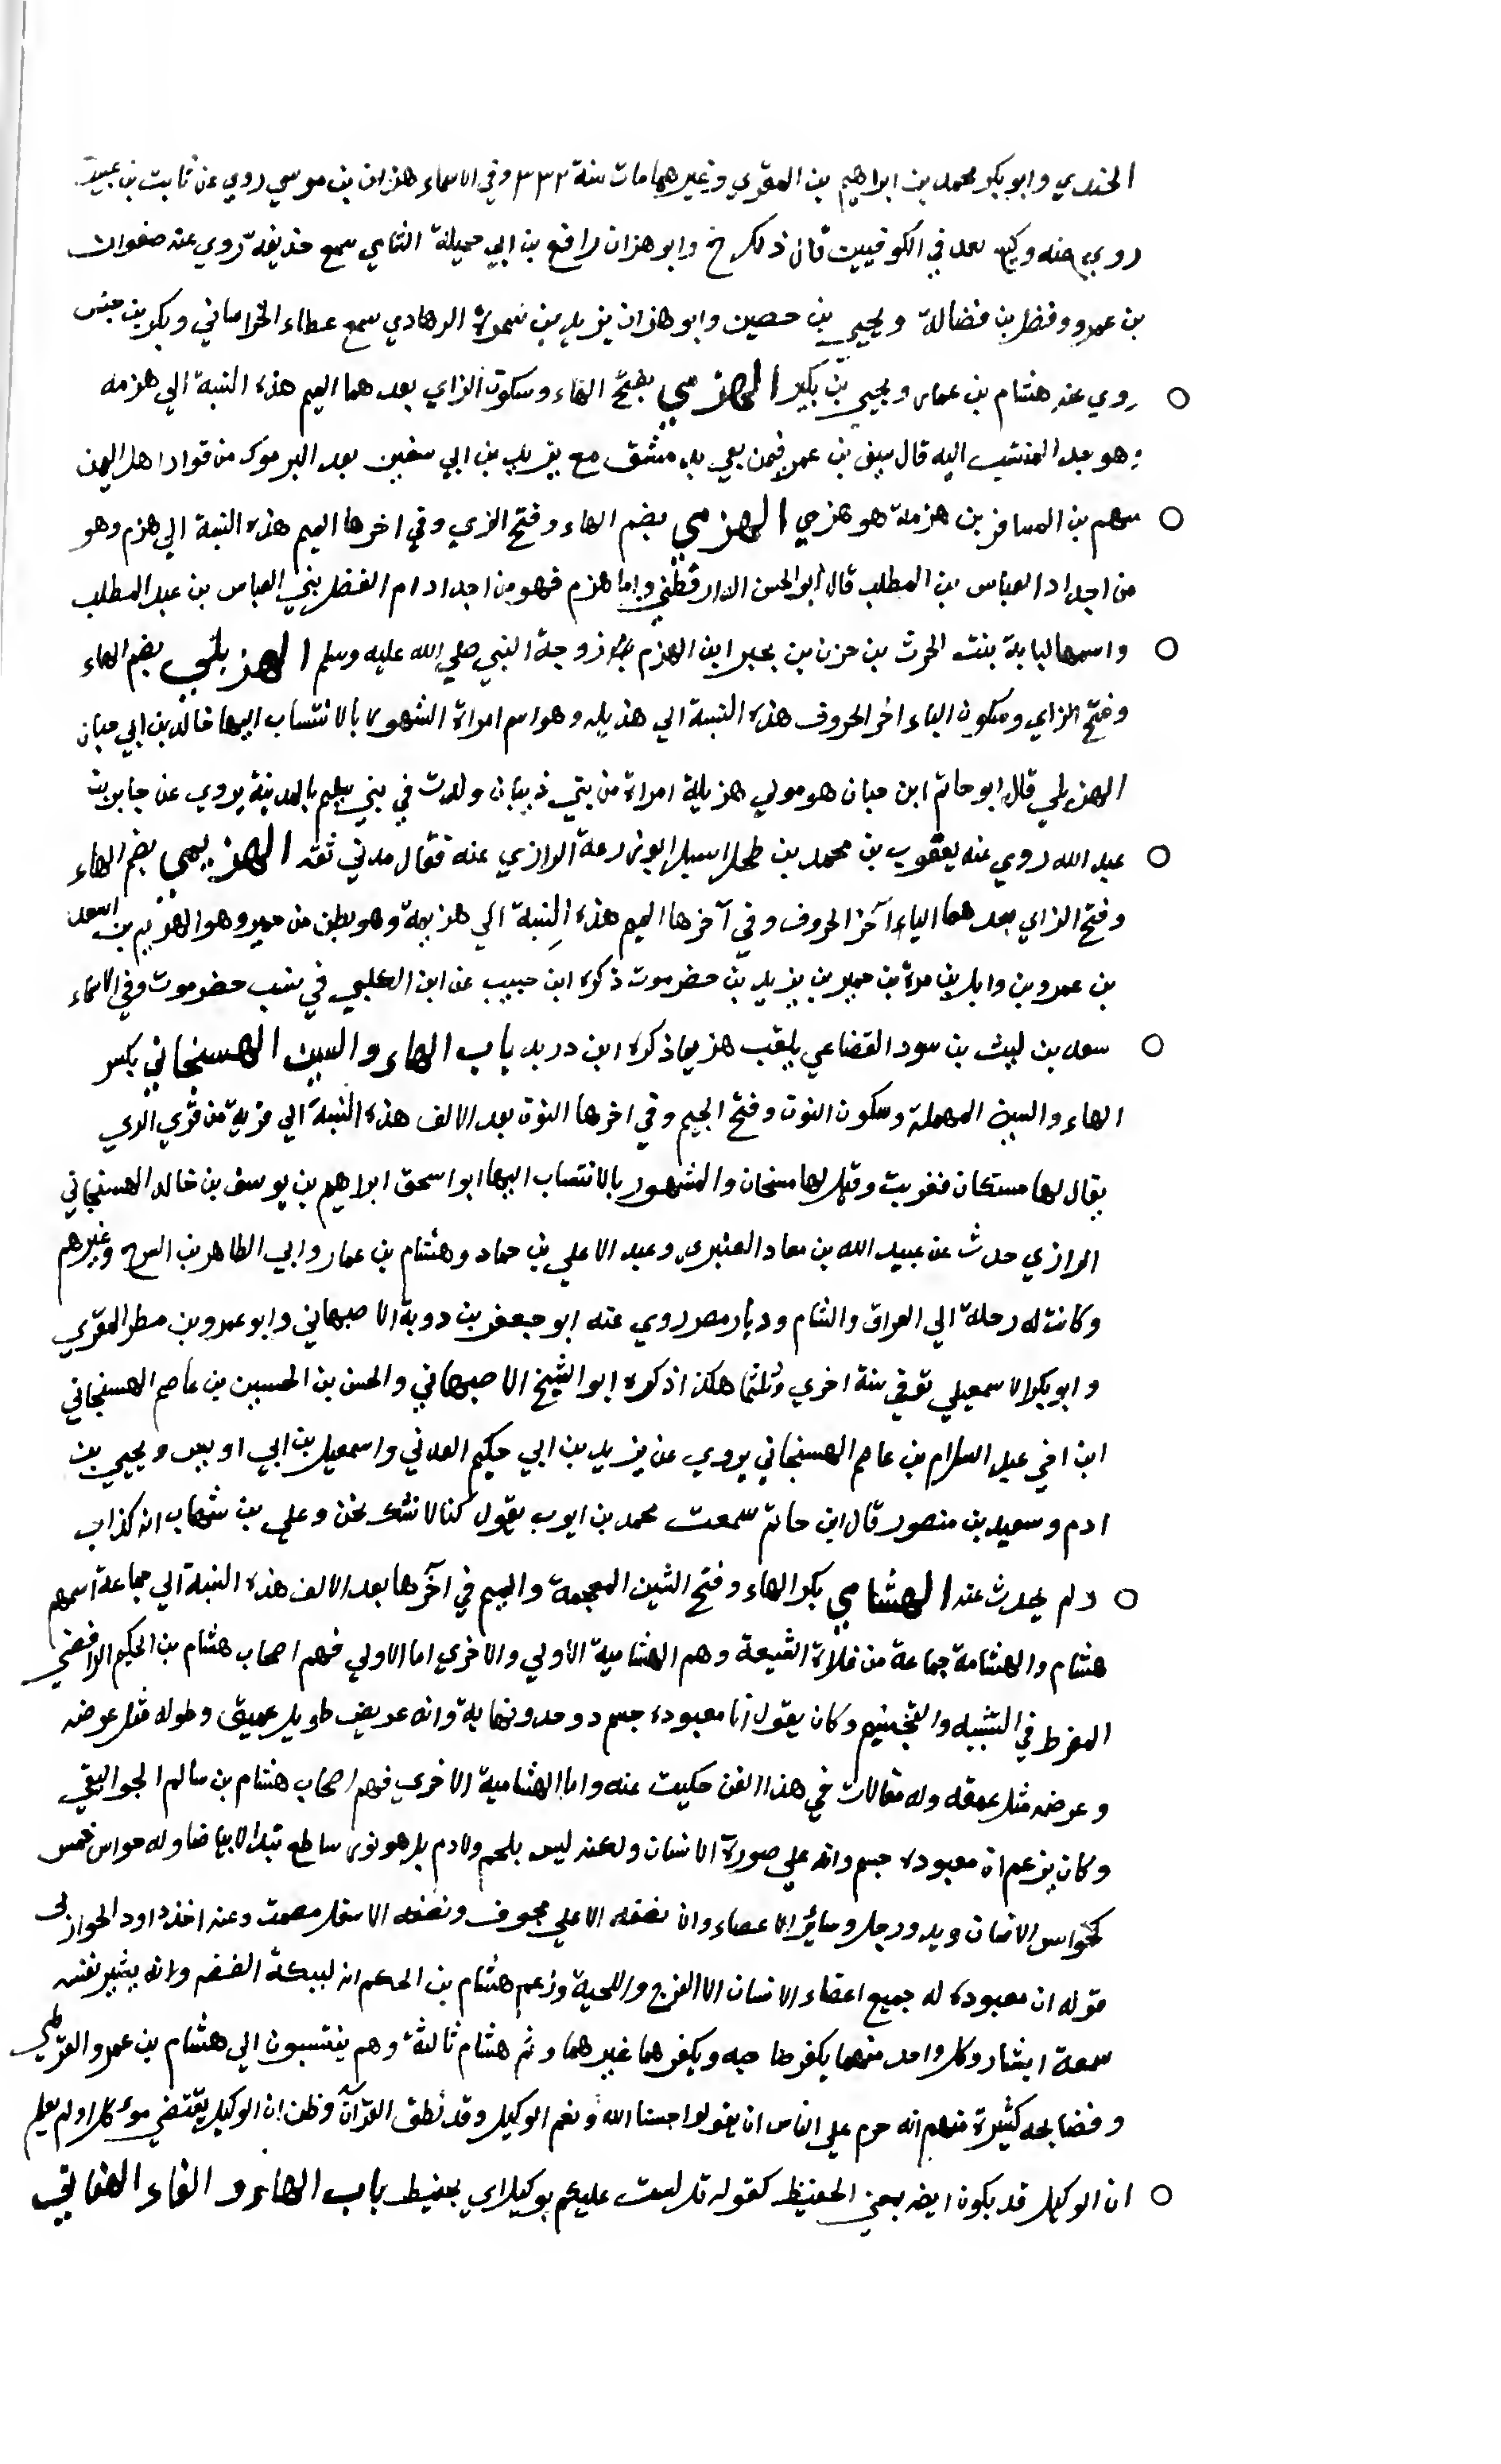 الجندي وابو بكر محمد بن ابراهيم بن المقري وغيرهما مات سنة ٣٣٢ وفي الاسماء هزان بن موسي روي عن ثابت بن عبيد
روي عنه وكيع يعد في الكوفيين قال ذلك خ وابو هزان رافع بن ابي جميلة الشامي سمع حذيفة روي عنه صفوان
بن عمرو وفضل بن فضالة ويحيي بن حصين وابو هزان يزيد بن سمرة الرهادي سمع عطاء الخراساني وبكر بن خنيس
روي عنه هشام بن عمار ويحيي بن بكير الهزمي بفتح الهاء وسكون الزاي بعدهما الميم هذه النسبة الي هزمه
وهو جد المنتسب اليه قال سيف بن عمر فيمن بقي بدمشق مع يزيد بن ابي سفين بعد اليرموك من قواد اهل اليمن
سهم بن المسافر بن هزمة هو هزمي الهزمي بضم الهاء وفتح الزي وفي اخرها الميم هذه النسبة الي هزم وهو
من اجداد العباس بن المطلب قال ابو الحسن الدارقطني واما هزم فهو من اجداد ام الفضل بني العباس بن عبد المطلب
واسمها لبابة بنت الحرث بن حزن بن بجير ابن الهزم زوجة النبي صلي الله عليه وسلم الهزيلي بضم الهاء
وفتح الزاي وسكون الياء اخر الحروف هذه النسبة الي هذيله وهو اسم امراة الشهور بالانتساب اليها خالد بن ابي حيان
الهزيلي قال ابو حاتم ابن حبان هو مولي هزيلة امراة من بني ذبيان ولدت في بني سلم بالمدينة يروي عن جابر بن
عبد الله روي عنه يعقوب بن محمد بن طحلا سيل ابو زرعة الرازي عنه فقال مدني ثقة الهزيمي بضم الهاء
وفتح الزاي بعدهما الياء آخر الحروف وفي آخرها الميم هذه النسبة الي هزيمة وهو بطن من حمير وهو الهزيم بن اسعد
بن عمرو بن وايل بن مرة بن حمير بن يزيد بن حضرموت ذكره ابن حبيب عن ابن الكلبي في نسب حضرموت وفي الاسماء
سعد بن ليث بن سود القضاعي يلقب هزيما ذكره ابن دريد باب الهاء والسين الهسنجاني بكسر
الهاء والسين المهملة وسكون النون وفتح الجيم وفي اخرها النون بعد الالف هذه النسبة الي قرية من قري الري
يقال لها مسنكان فعربت وقيل لها هسنجان والمشهور بالانتساب اليها ابو اسحق ابراهيم بن يوسف بن خالد الهسنجاني
الرازي حدث عن عبيد الله بن معاد العنبري وعبد الاعلي بن حماد وهشام بن عمار وابي الطاهر بن السرح وغيرهم
وكانت له رحلة الي العراق والشام وديار مصر روي عنه ابو جعفر بن دوبة الاصبهاني وابو عمرو بن مطر المقري
وابو بكر الاسمعيلي توفي سنة احدي وثلثما هكذا ذكره ابو الشيخ الاصبهاني والحسن بن الحسين بن عاصم الهسنجاني
ابن اخي عبد السلام بن عاصم الهسنجاني يروي عن يزيد بن ابي حكيم العدني واسمعيل بن ابي اويس ويحيي بن
ادم وسعيد بن منصور قال ابن حاتم سمعت محمد بن ايوب يقول كنا لا نشك نحن وعلي بن شهاب انه كذاب
ولم يحدث عنه الهشامي بكسر الهاء وفتح الشين المعجمة والميم في آخرها بعد الالف هذه النسبة الي جماعة اسمهم
هشام والهشامة جماعة من غلاة الشيعة وهم الهشامية الاولي والاخري اما الاولي فهم اصحاب هشام بن الحكم الرافضي
المفرط في التشبيه والتجسيم وكان يقول انا معبوده جسم ذو حد ونهاية وانه عريض طويل عميق وطوله مثل عرضه
وعرضه مثل عمقه وله مقالات في هذا الفن حكيت عنه واما الهشامية الاخري فهم اصحاب هشام بن سالم الجواليقي
وكان يزعم ان معبوده جسم وانه علي صورة الانسان ولكنه ليس بلحم ولا دم بل هو نور ساطع بياضا وله حواس خمس
كحواس الانسان ويد ورجل وسائر الاعضاء وان نصفه الاعلي مجوف ونصفه الاسفل مصمت وعنه اخذ داود الجواربي
قوله ان معبوده له جميع اعضاء الانسان الا الفرج واللحية وزعم هشام بن الحكم انه لسبيكة الفضه وانه بشبر نفسه
سبعة اشبار وكل واحد منهما يكفر صاحبه ويكفرهما غيرهما وثم هشام ثالث وهم ينتسبون الي هشام بن عمرو الفوطي
وفضايحه كثيرة منهم انه حرم علي الناس ان يقولوا حسبنا الله ونعم الوكيل وقد نطق القرآن وظن ان الوكيل يقتضي موكلا ولم يعلم
ان الوكيل قد يكون ايضه بمعني الحفيظ كقوله قل لست عليكم بوكيل اي بحفيظ باب الهاء والفاء الهفاني